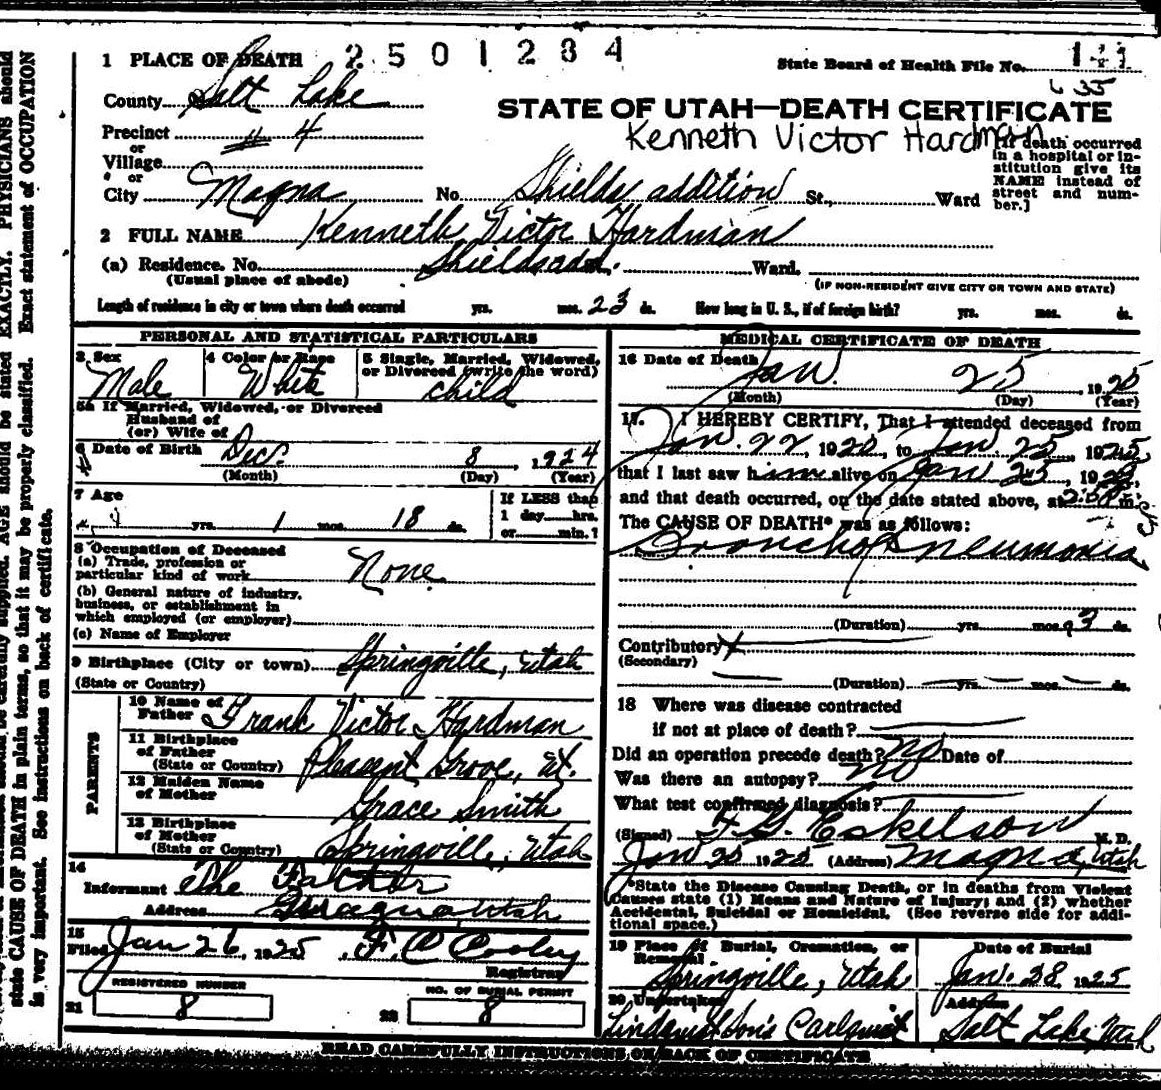 1 PLACE OF DEATH 2501284
State Board of Health File No.
County Salt Lake
635
STATE OF UTAH—DEATH CERTIFICATE
Kenneth Victor Hardman
Precinct # 4
or
Village
or
City Magna No. Shields addition St., Ward
[If death occurred
in a hospital or in-
stitution give its
NAME instead of
street and num-
ber.]
2 FULL NAME Kenneth Victor Hardman
(a) Residence. No. Shields add. Ward.
(Usual place of abode)
(IF NON-RESIDENT GIVE CITY OR TOWN AND STATE)
Length of residence in city or town where death occurred yrs. mos. 23 ds. How long in U. S., if of foreign birth? yrs. mos. ds.
PERSONAL AND STATISTICAL PARTICULARS
3 Sex
Male
4 Color or Race
White
5 Single, Married, Widowed,
or Divorced (write the word)
child
5a If Married, Widowed, or Divorced
Husband of
(or) Wife of
6 Date of Birth Dec. 8, 1924
(Month) (Day) (Year)
7 Age
yrs. 1 mos. 18 ds.
If LESS than
1 day hrs.
or min.?
8 Occupation of Deceased
(a) Trade, profession or
particular kind of work None
(b) General nature of industry,
business, or establishment in
which employed (or employer)
(c) Name of Employer
9 Birthplace (City or town) Springville, Utah
(State or Country)
PARENTS
10 Name of
Father Frank Victor Hardman
11 Birthplace
of Father
(State or Country) Pleasent Grove, Ut.
12 Maiden Name
of Mother Grace Smith
13 Birthplace
of Mother
(State or Country) Springville, Utah
14
Informant The Father
Address Magna Utah
15
Filed Jan 26, 1925. F. C. Cooley
Registrar
REGISTERED NUMBER
21 8
NO. OF BURIAL PERMIT
22 8
MEDICAL CERTIFICATE OF DEATH
16 Date of Death Jan. 25, 1925
(Month) (Day) (Year)
17. I HEREBY CERTIFY, That I attended deceased from
Jan. 22, 1925, to Jan 25, 1925,
that I last saw him alive on Jan 25, 1925,
and that death occurred, on the date stated above, at m.
The CAUSE OF DEATH* was as follows:
Broncho Pneumonia
(Duration) yrs. mos. 3 ds.
Contributory
(Secondary)
(Duration) yrs. mos. ds.
18 Where was disease contracted
if not at place of death?
Did an operation precede death? no Date of
Was there an autopsy? no
What test confirmed diagnosis?
(Signed) F. G. Eskelson M. D.
Jan 1925 (Address) Magna, Utah
*State the Disease Causing Death, or in deaths from Violent
Causes state (1) Means and Nature of Injury; and (2) whether
Accidental, Suicidal or Homicidal. (See reverse side for addi-
tional space.)
19 Place of Burial, Cremation, or
Removal
Springville, Utah
Date of Burial
Jan. 28 1925
20 Undertaker
Address
Salt Lake, Utah
READ CAREFULLY INSTRUCTIONS ON BACK OF CERTIFICATE
EXACTLY. PHYSICIANS should
Exact statement of OCCUPATION
AGE should be stated
state CAUSE OF DEATH in plain terms, so that it may be properly classified.
is very important. See instructions on back of certificate.